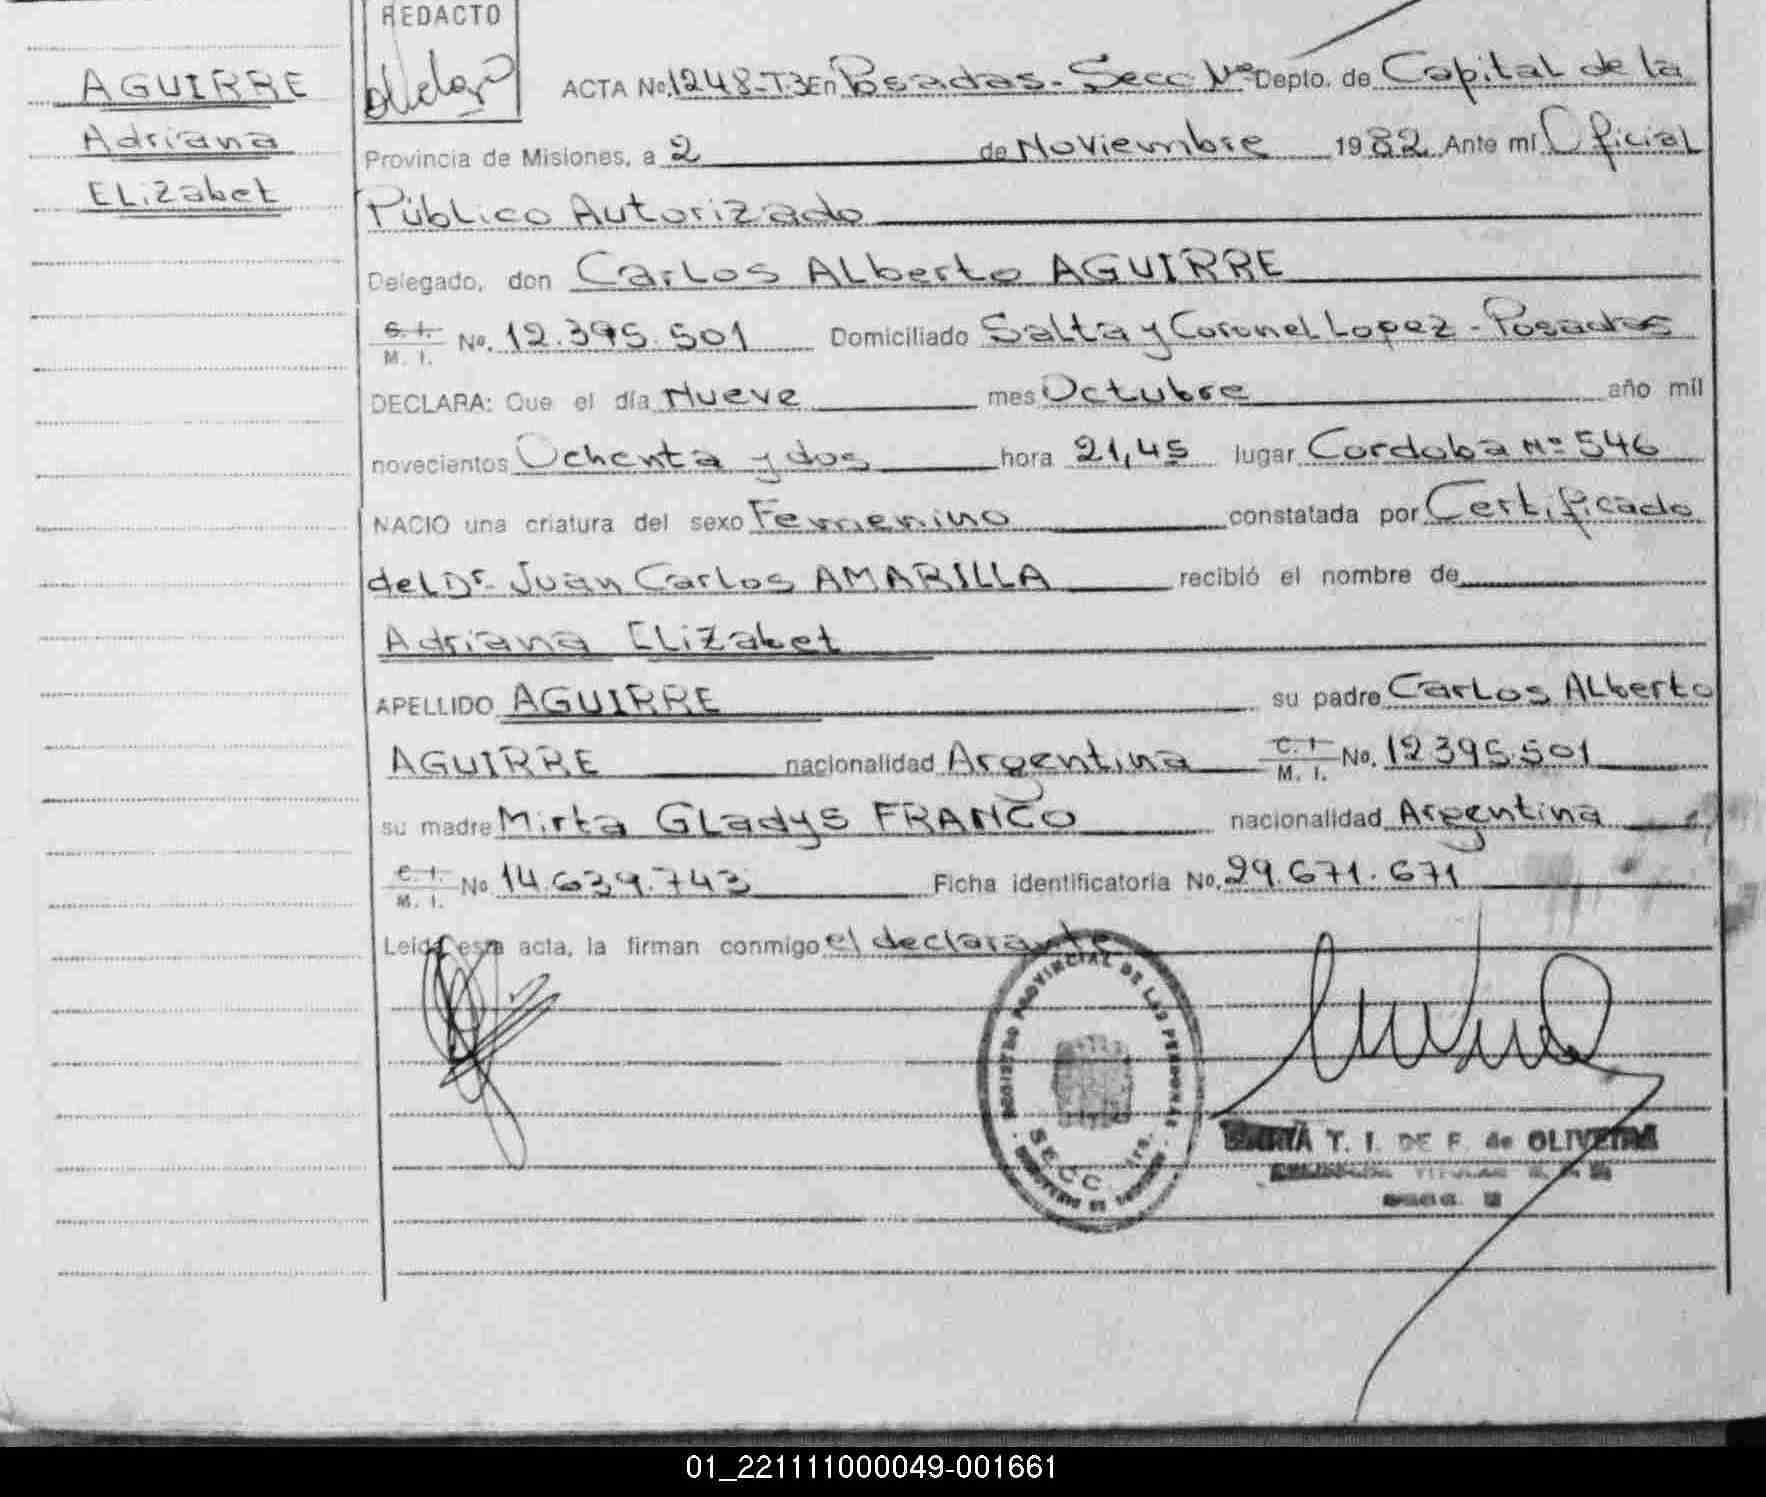 REDACTO
AGUIRRE
Adriana
ELizabet
ACTA No. 1248-T.3 En Posadas - Secc Nº Depto. de Capital de la
Provincia de Misiones, a 2 de Noviembre 1982 Ante mí Oficial
Público Autorizado
Delegado, don Carlos ALberto AGUIRRE
C. I. M. I. No. 12.395.501 Domiciliado Salta y Coronel Lopez - Posadas
DECLARA: Que el día Nueve mes Octubre año mil
novecientos Ochenta y dos hora 21,45 lugar Cordoba Nº 546
NACIO una criatura del sexo Femenino constatada por Certificado
del Dr. Juan Carlos AMARILLA recibió el nombre de
Adriana ELizabet
APELLIDO AGUIRRE su padre Carlos ALberto
AGUIRRE nacionalidad Argentina C. I. M. I. No. 12395.501
su madre Mirta GLadys FRANCO nacionalidad Argentina
C. I. M. I. No 14.639.743 Ficha identificatoria No. 29.671.671
Leída esta acta, la firman conmigo el declarante
REGISTRO PROVINCIAL DE LAS PERSONAS
SECC
T. I. DE F. de OLIVEIRA
01_221111000049-001661